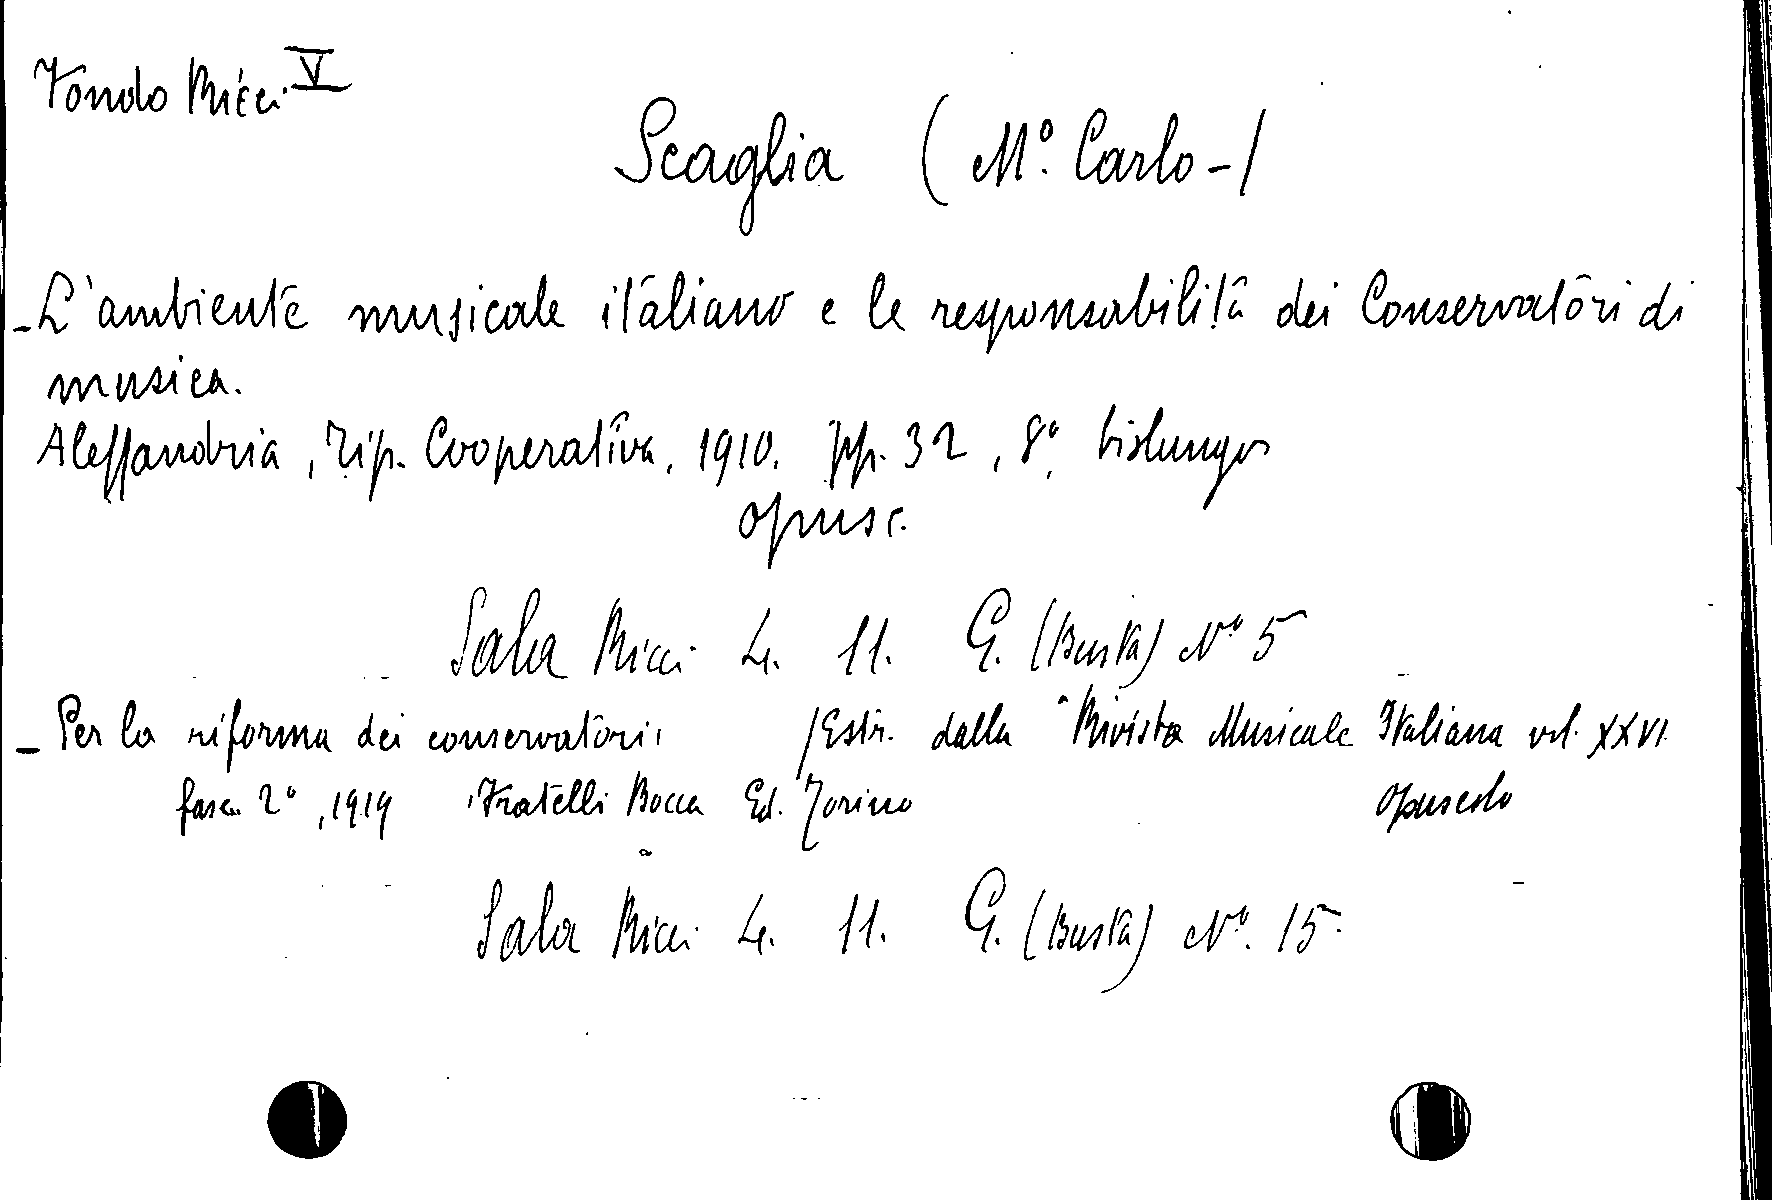 Fondo Ricci V
Scaglia (M.º Carlo -)
- L'ambiente musicale italiano e le responsabilità dei Conservatori di
musica.
Alessandria, Tip. Cooperativa, 1910. pp. 32, 8º, bislungo
opusc.
Sala Ricci L. 11. G. (Busta) Nº 5
- Per la riforma dei conservatori, /Estr. dalla "Rivista Musicale Italiana vol. XXVI
fasc. 2º, 1919, Fratelli Bocca Ed. Torino opuscolo
Sala Ricci L. 11. G. (Busta) Nº. 15.